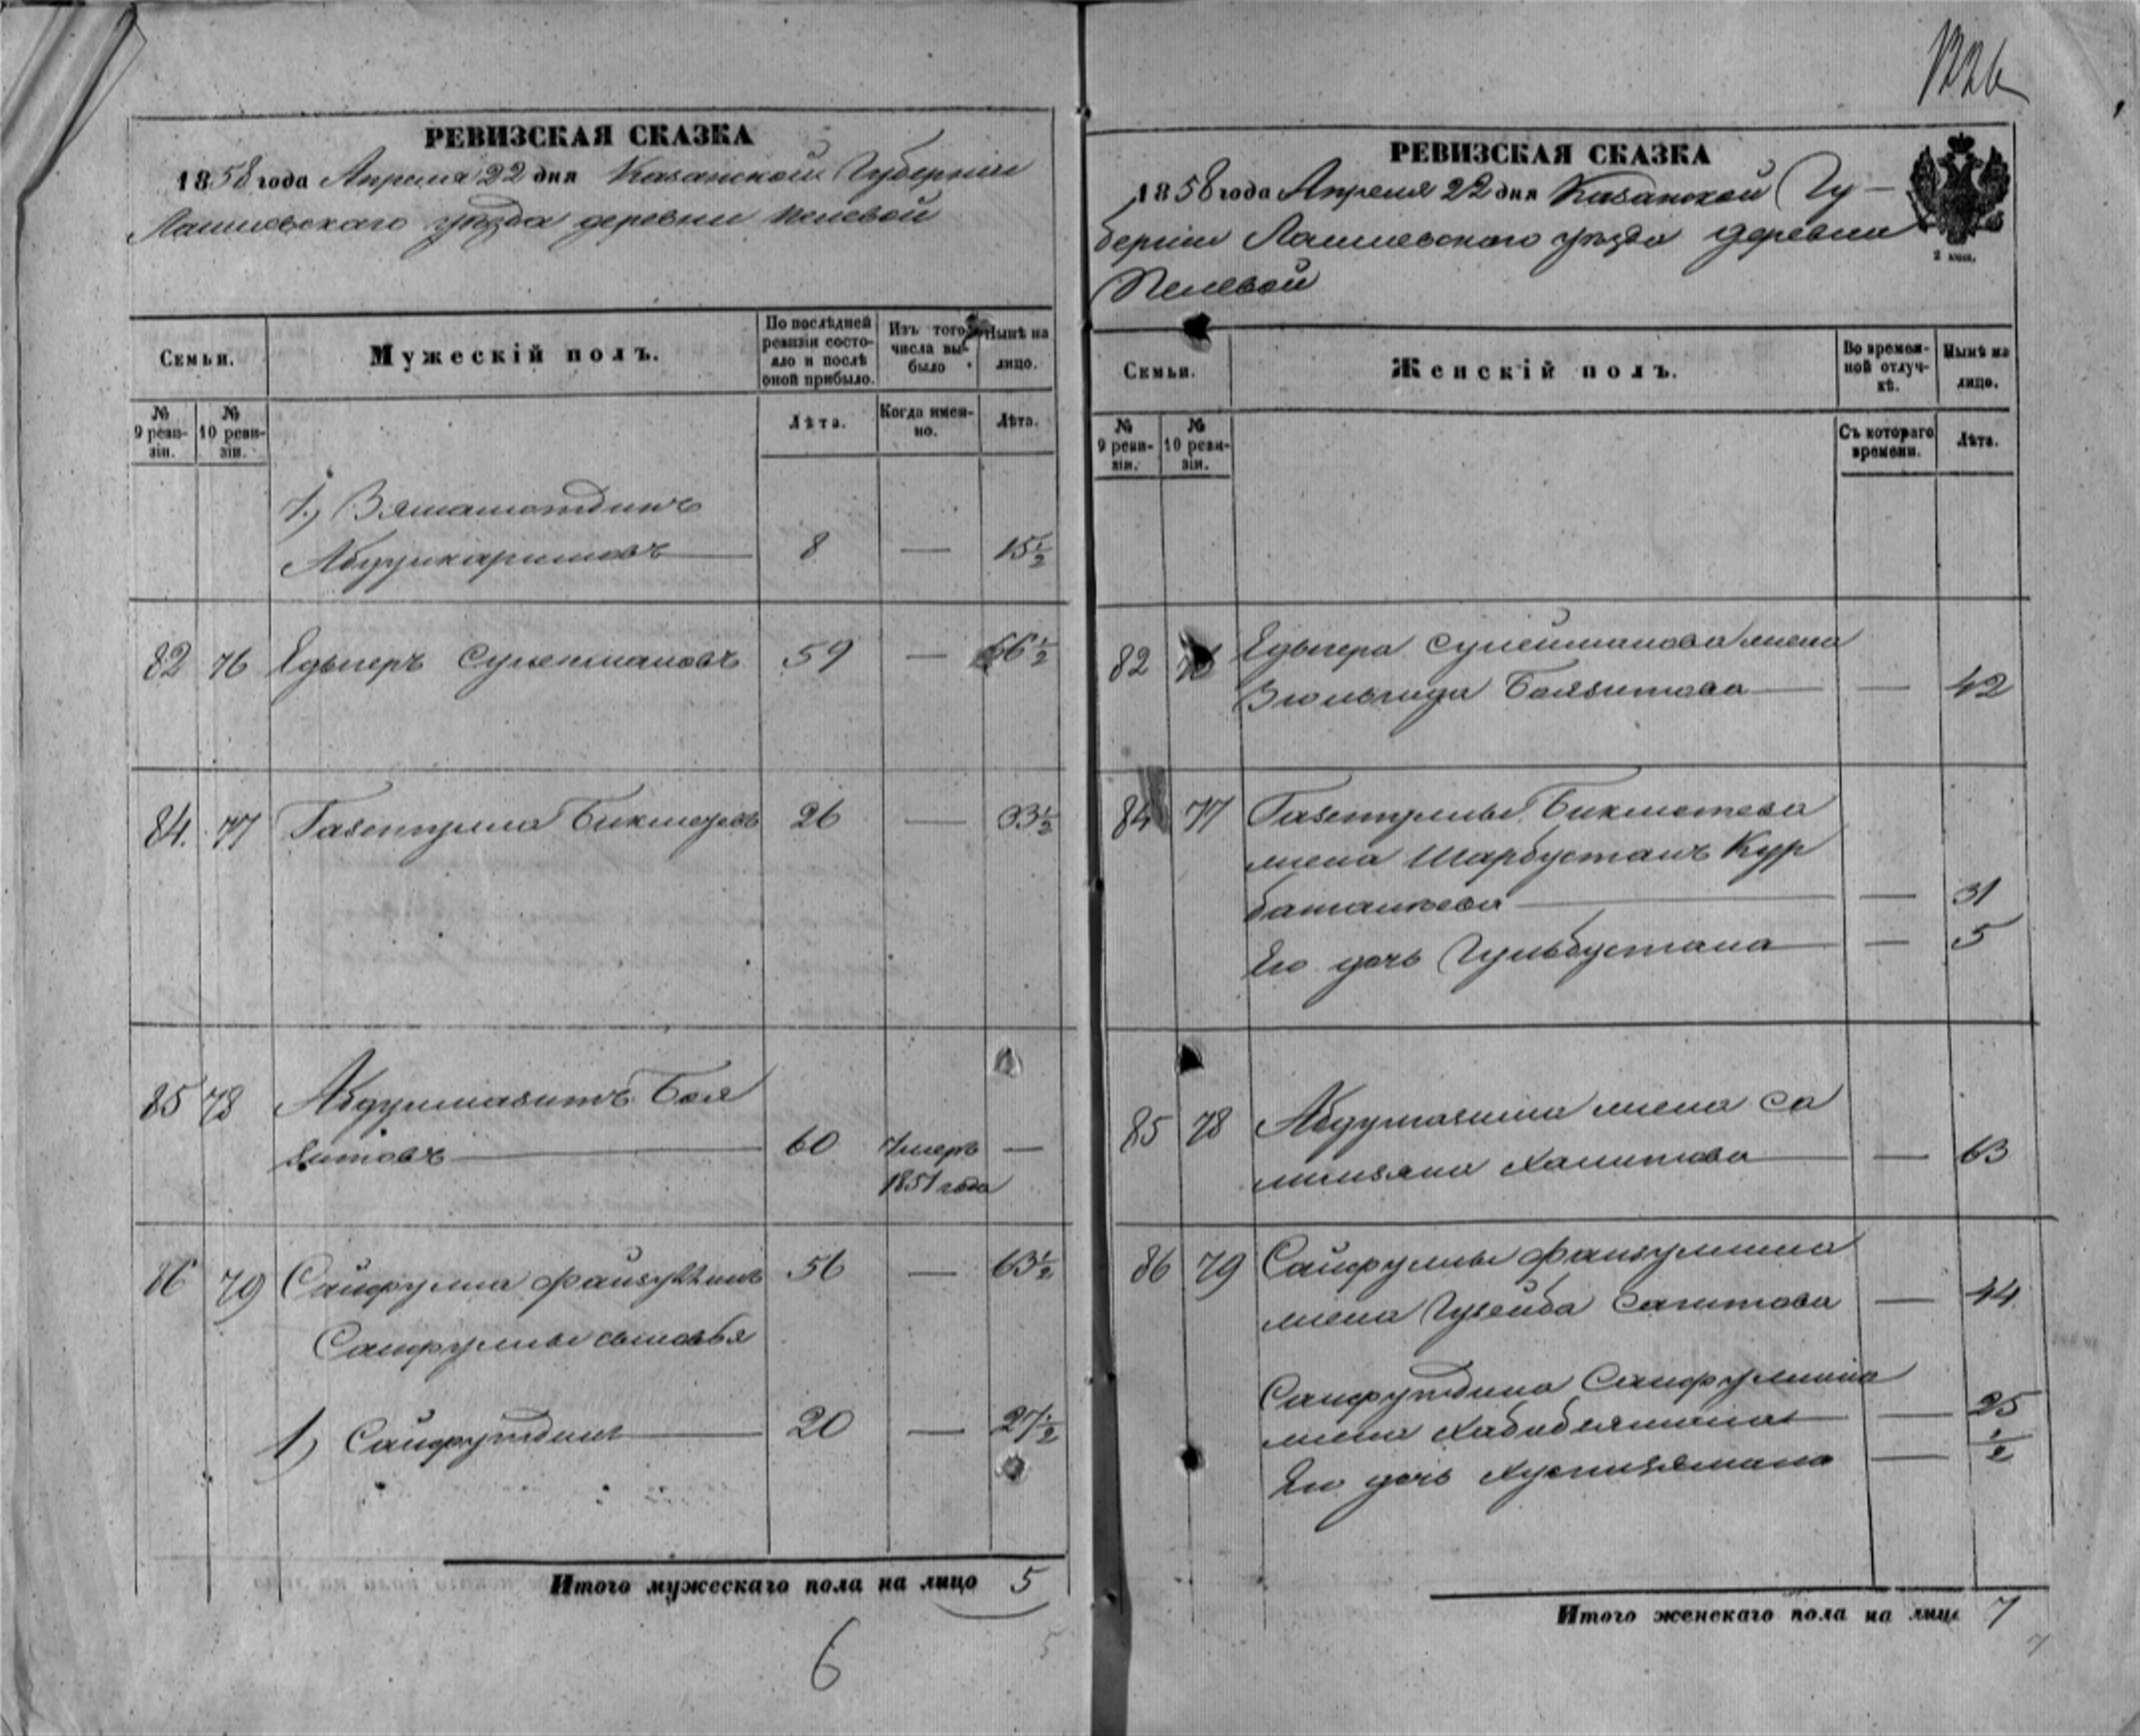 1226
РЕВИЗСКАЯ СКАЗКА
1858 года Апреля 22 дня Казанской Губернии
Лаишевскаго уѣзда деревни Пелевой
Семьи.
Мужескій полъ.
По послѣдней ревизіи состояло и послѣ оной прибыло.
Изъ того числа выбыло
Нынѣ на лицо.
№ 9 ревизіи.
№ 10 ревизіи.
Лѣта.
Когда именно.
Лѣта.
7.)
Абдулкаримовъ 8 — 15 ½
82 76 Едыгеръ Сулеймановъ 59 — 66 ½
84. 77 Газетулла 26 — 33 ½
85 78 Абдулмазитъ Бая
зитовъ 60 Умеръ —
1851 года
86 79 Сайфулла Файзуллинъ 56 — 63 ½
Сайфуллы сыновья
1) Сайфутдинъ 20 — 27 ½
Итого мужескаго пола на лицо 5
6
5
РЕВИЗСКАЯ СКАЗКА
1858 года Апреля 22 дня Казанской Гу-
берніи Лаишевскаго уѣзда деревни
Пелевой
2 коп.
Семьи.
Женскій полъ.
Во временной отлучкѣ.
Нынѣ на лицо.
№ 9 ревизіи.
№ 10 ревизіи.
Съ котораго времени.
Лѣта.
82 76 Едыгера Сулейманова жена
Зюльгида Баязитова — 42
84 77 Газетуллы Бикметева
жена Шарбустанъ Кур
баталеева — 31
Его дочь Гульбустана — 5
85 78 Абдулмазита жена Са
Халитова — 63
86 79 Сайфуллы Файзуллина
жена Сагитова — 44
Сайфутдина Сайфуллина
жена Хабибзямала — 25
Его дочь — ½
Итого женскаго пола на лицо 7
7